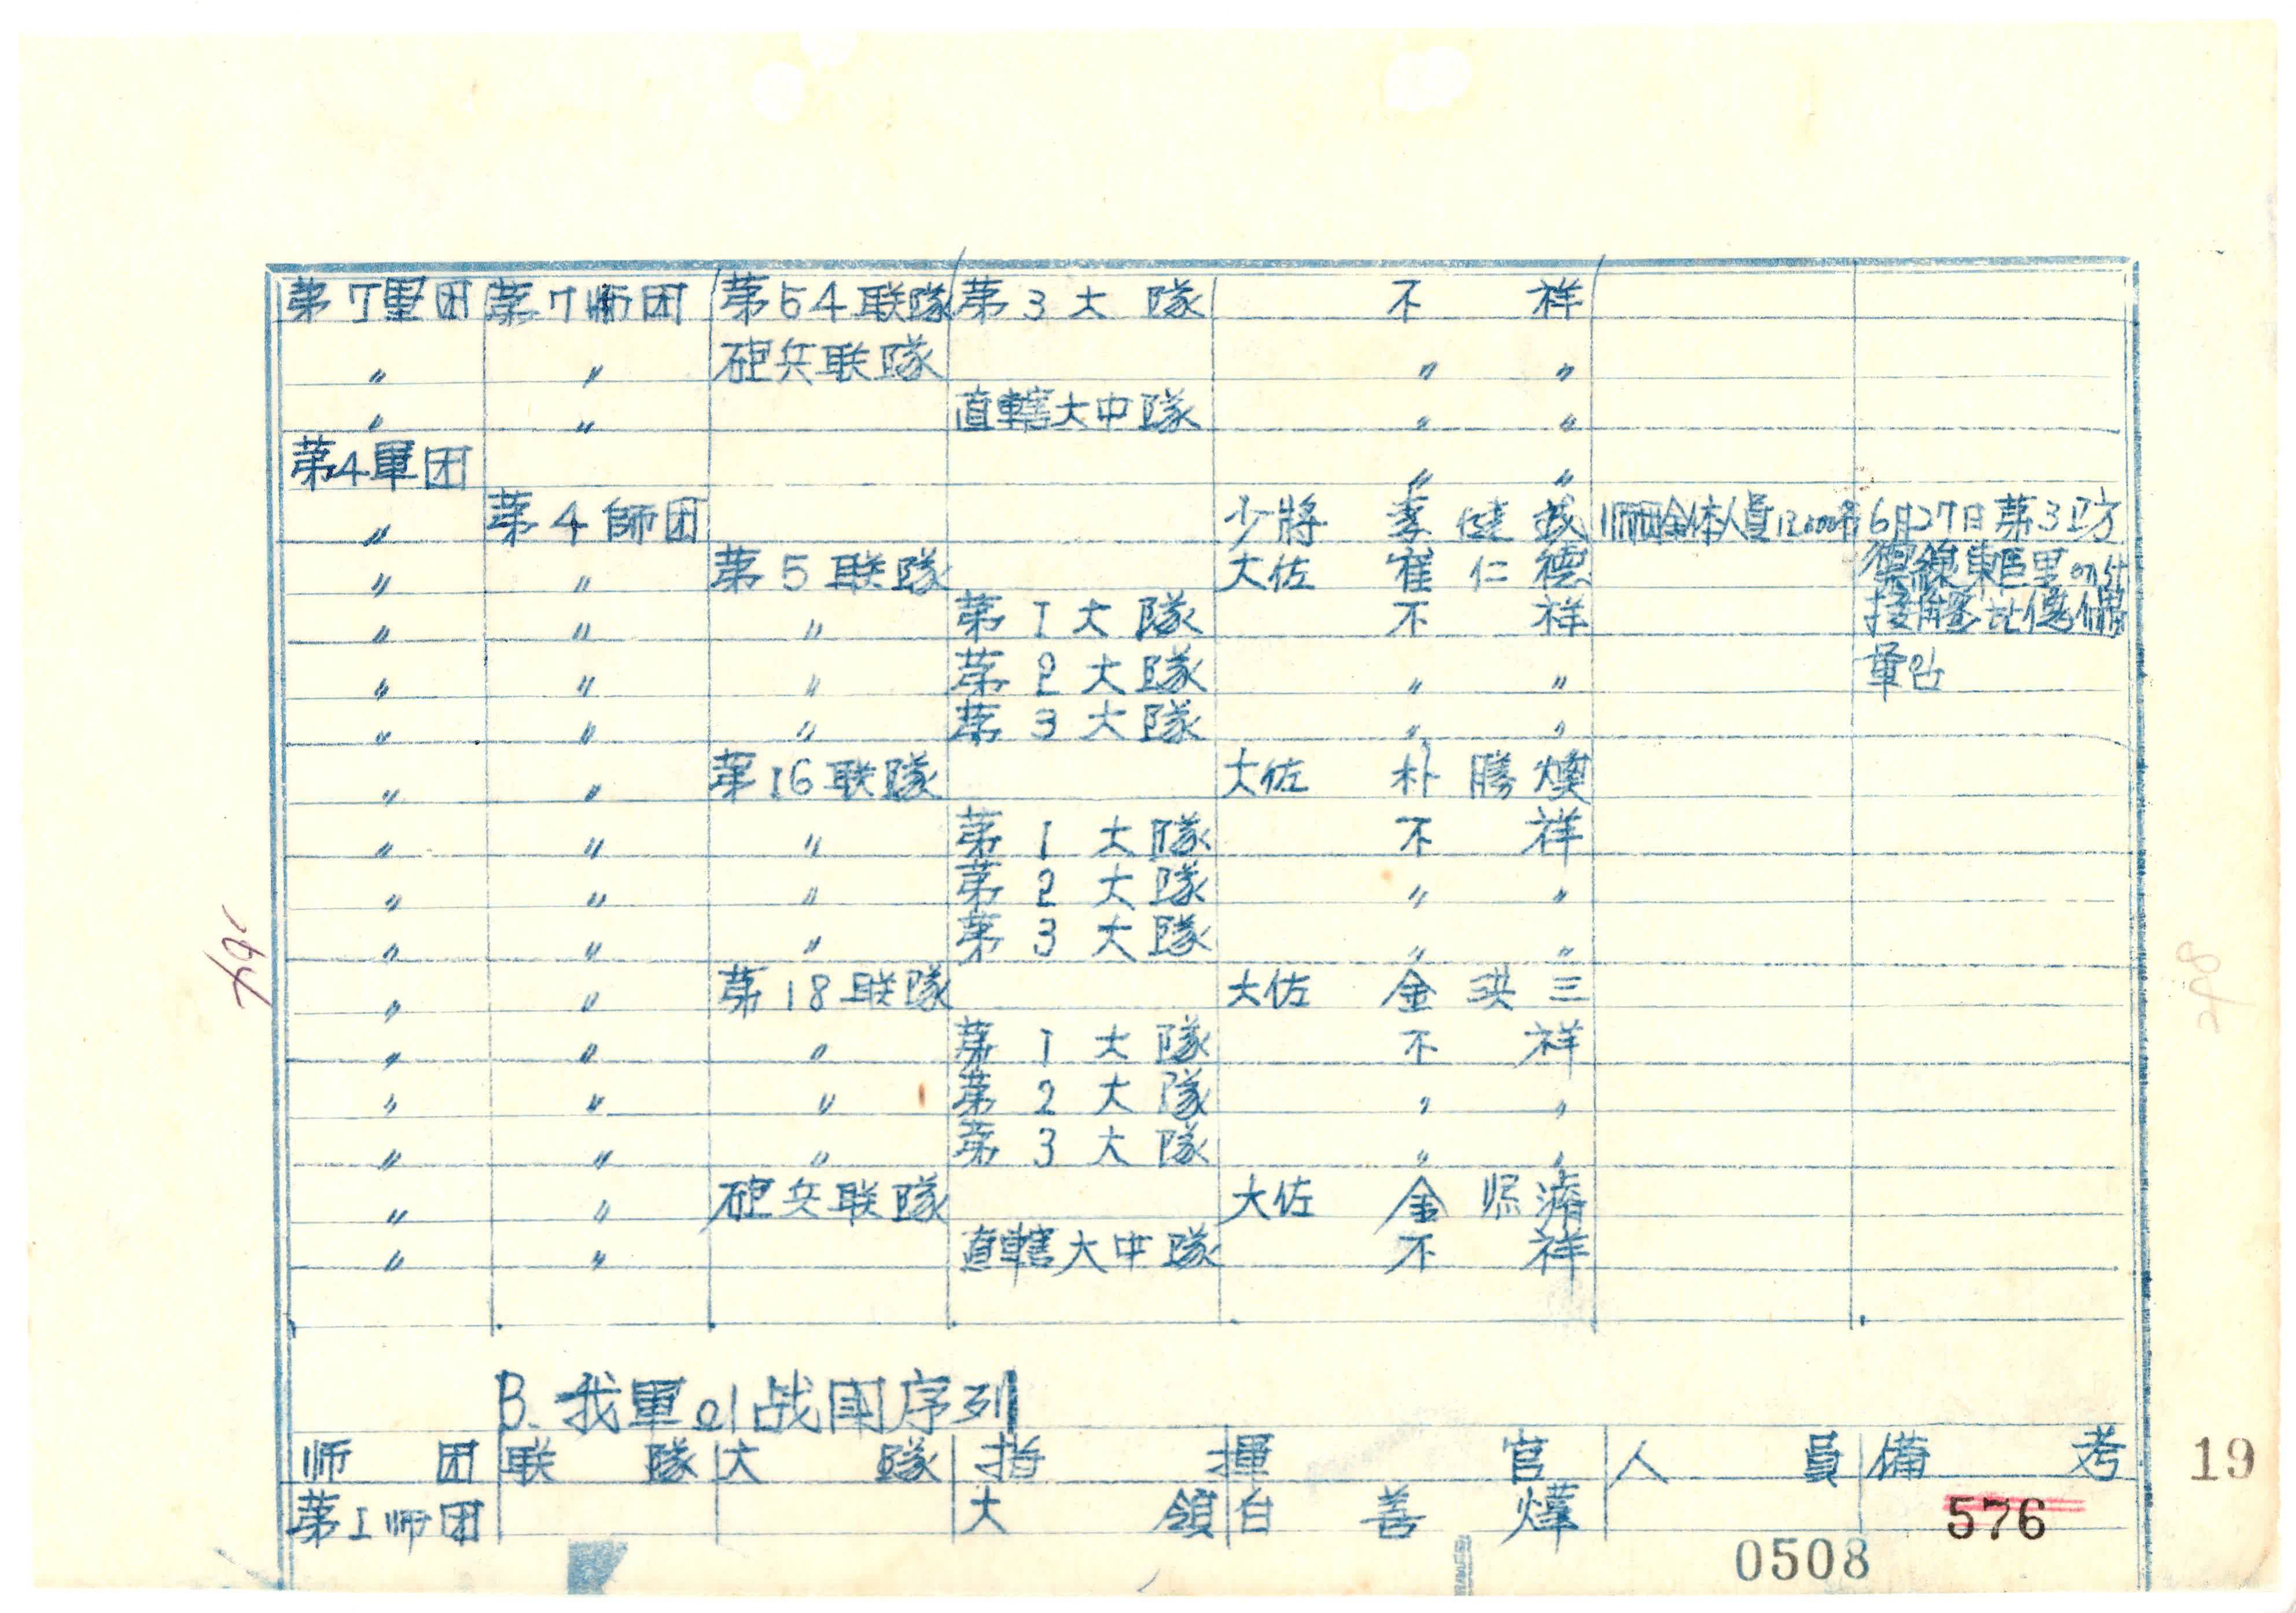 第丁軍団 第7师団 第54联隊 第3大隊 不祥
〃 〃 砲兵联隊 〃 〃
〃 〃 直轄大中隊 〃 〃
第4軍団 〃 〃
〃 第4師団 少將 李 健 武 人員12,000名 6月27日 第3防
〃 〃 第5联隊 大佐 崔 仁 德 線
〃 〃 〃 第1大隊 不祥 接
〃 〃 〃 第2大隊 〃 〃 軍임
〃 〃 〃 第3大隊 〃 〃
〃 〃 第16联隊 大佐 朴 勝 煥
〃 〃 〃 第1大隊 不祥
〃 〃 〃 第2大隊 〃 〃
〃 〃 〃 第3大隊 〃 〃
〃 〃 第18联隊 大佐 金 洪 三
〃 〃 〃 第1大隊 不祥
〃 〃 〃 第2大隊 〃 〃
〃 〃 〃 第3大隊 〃 〃
〃 〃 砲兵联隊 大佐 金
〃 〃 直轄大中隊 不祥
B. 我軍의 战闘序列
师団 联隊 大隊 指揮官 人員 備考
第1师団 大領 白善燁
19
576
0508